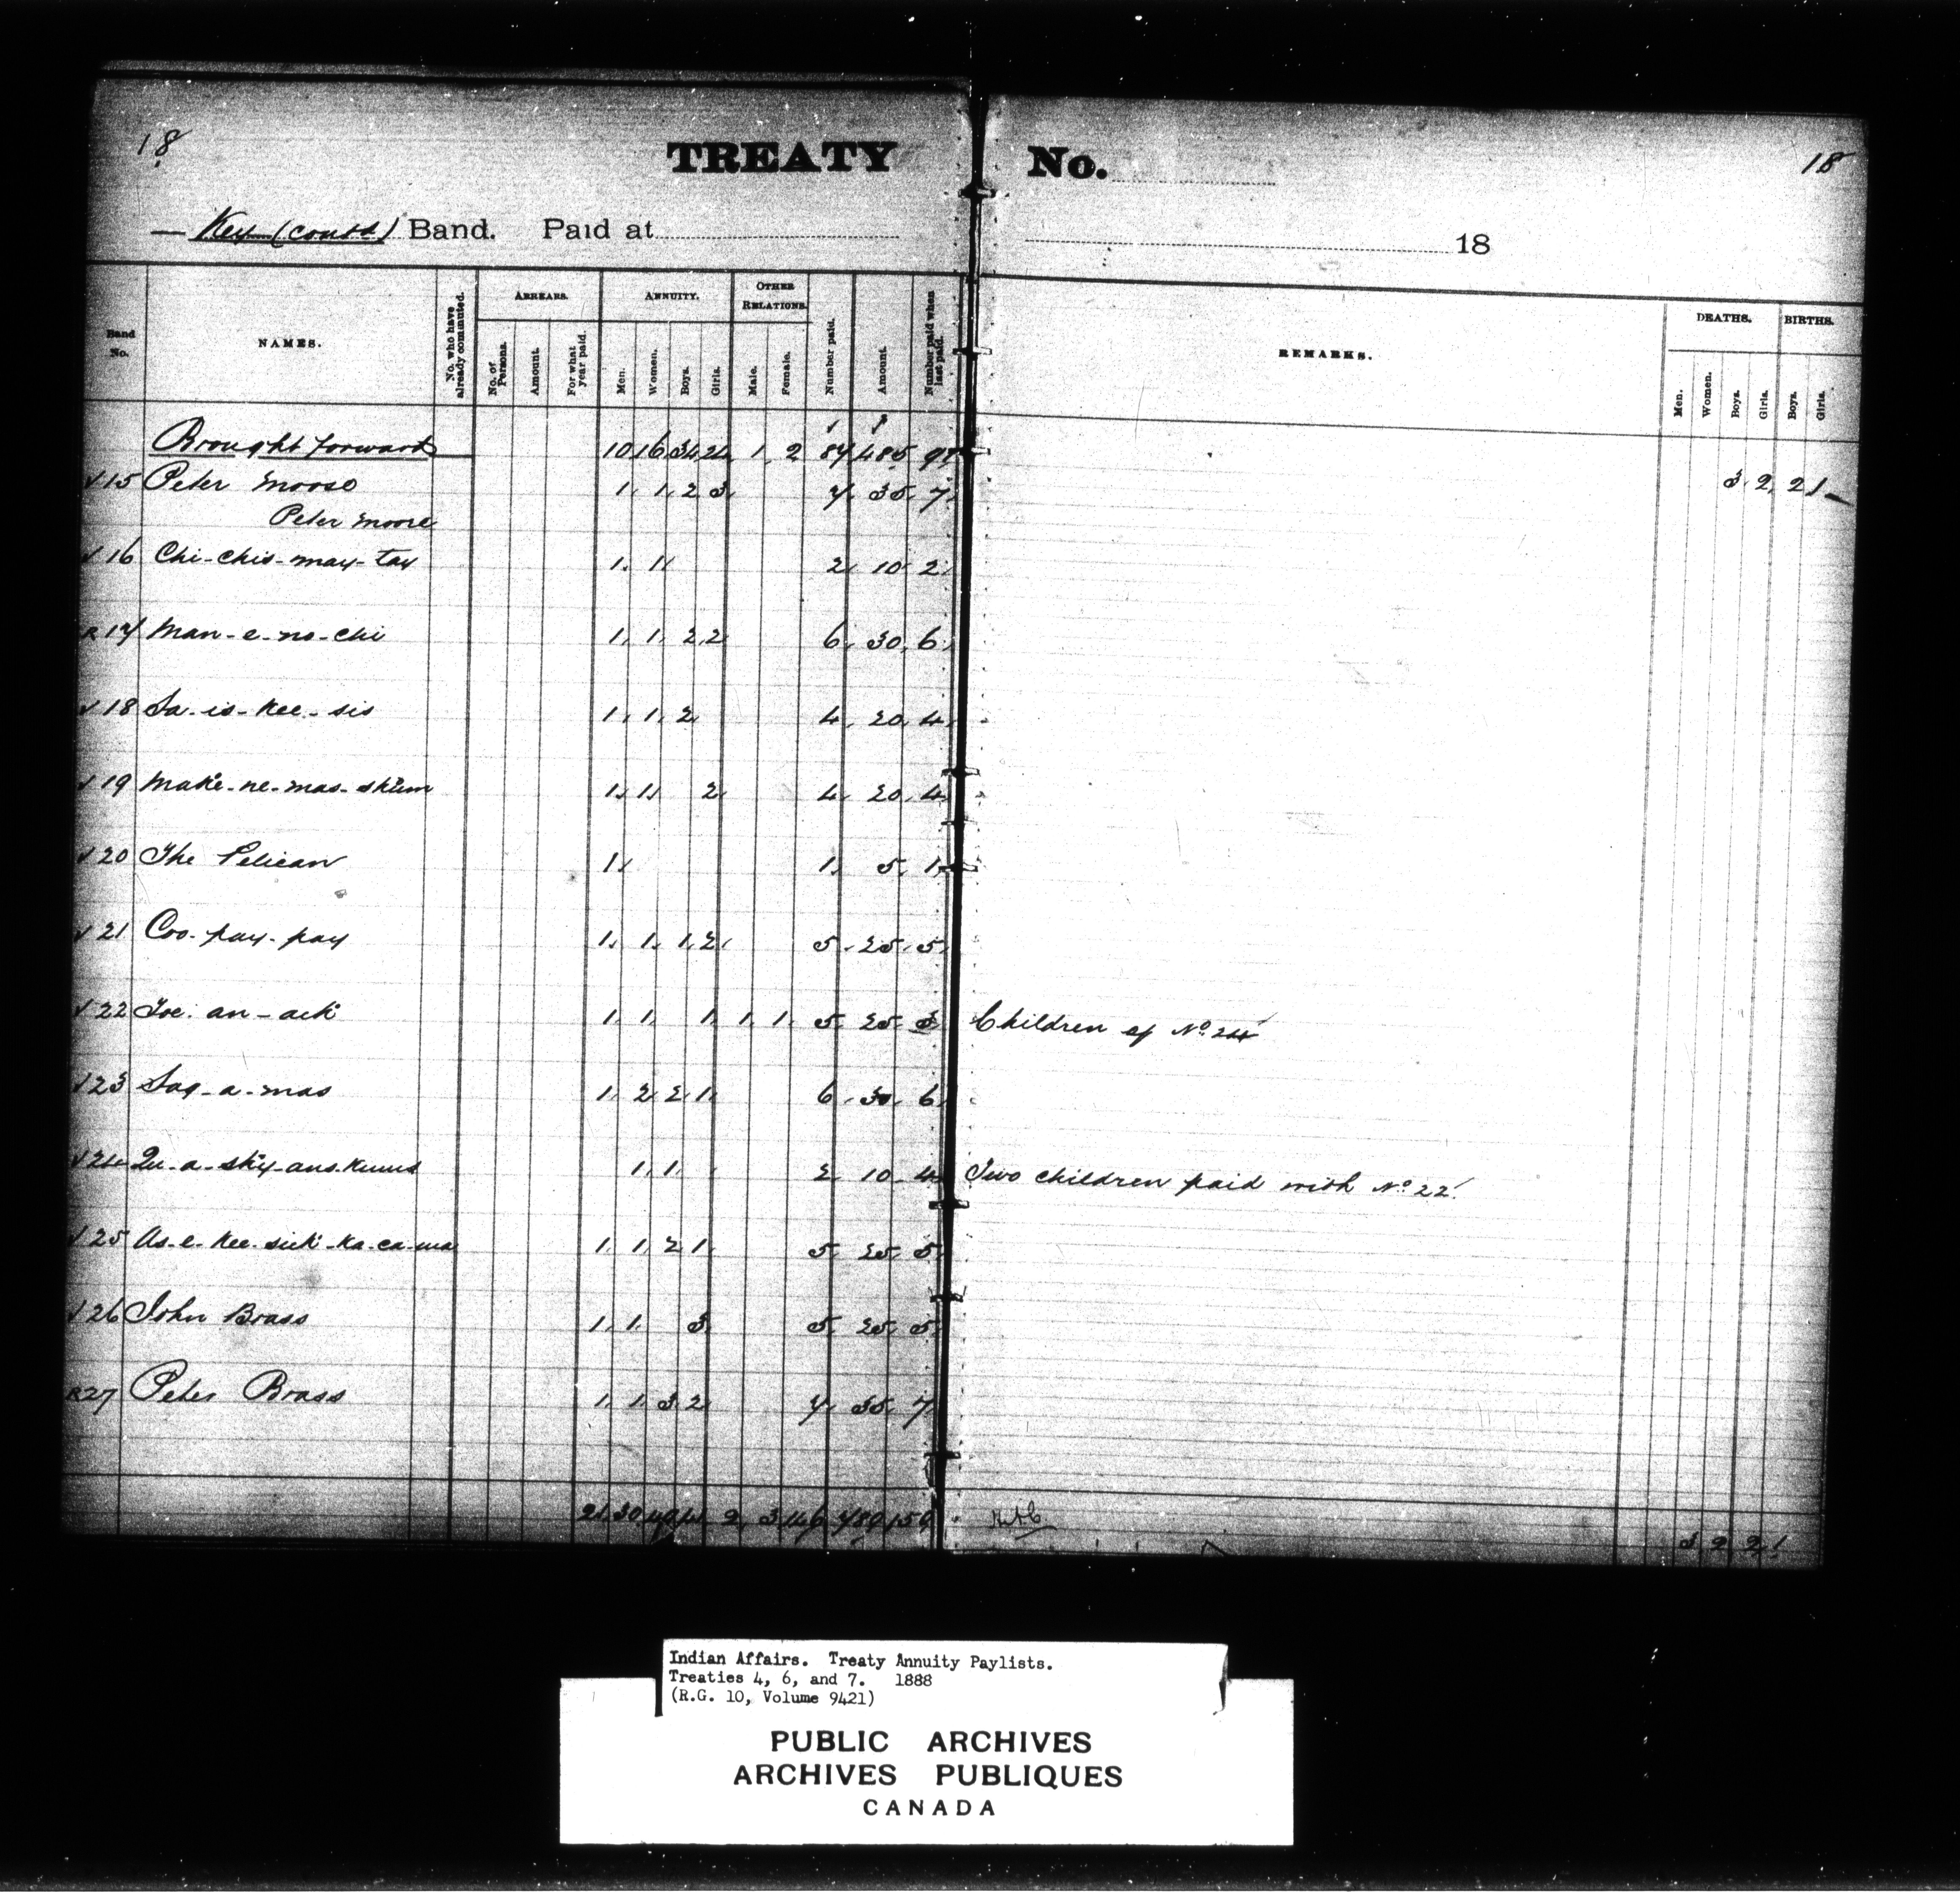 18 TREATY No. 18
Key (contd) Band. Paid at 18
Band No. NAMES. No. who have already commuted. ARREARS. No. of Persons. Amount. For what year paid. ANNUITY. Men. Women. Boys. Girls. OTHER RELATIONS. Male. Female. Number paid. Amount. Number paid when last paid. REMARKS. DEATHS. Men. Women. Boys. Girls. BIRTHS. Boys. Girls.
Brought forward 10 16 34 24 1 2 87 485 3 2 2 1
15 Peter Moose 1 1 2 3 7 35 7
Peter Moore
16 Chi-chis-may-tay 1 1 2 10 2
R 17 Man-e-no-chi 1 1 2 2 6 30 6
18 Sa-is-kee-sis 1 1 2 4 20 4
19 1 1 2 4 20 4
20 The Pelican 1 1 5 1
21 Coo-pay-pay 1 1 1 2 5 25 5
22 1 1 1 1 1 5 25 Children of No. 24
23 1 2 2 1 6 30 6
24 1 1 2 10 4 Two children paid with No. 22
25 As-e-kee-sick-ka-ca-ma 1 1 2 1 5 25 5
26 John Brass 1 1 3 5 25 5
R 27 Peter Brass 1 1 3 2 7 35 7
21 30 2 3 146 3 2 2 1
Indian Affairs. Treaty Annuity Paylists.
Treaties 4, 6, and 7. 1888
(R.G. 10, Volume 9421)
PUBLIC ARCHIVES
ARCHIVES PUBLIQUES
CANADA